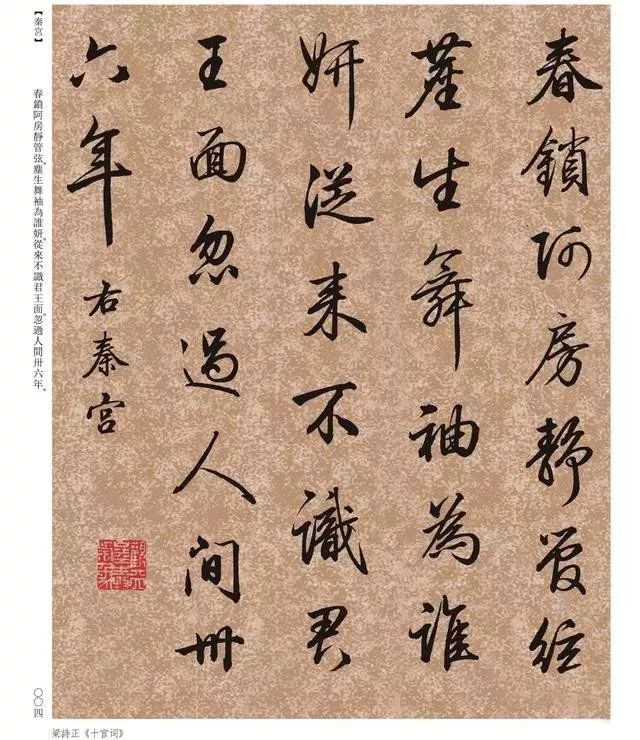 春鎖阿房靜管弦
塵生舞袖為誰
妍從来不識君
王面忽過人间卅
六年
右秦宮
【秦宮】
春鎖阿房靜管弦。塵生舞袖為誰妍。從來不識君王面。忽過人間卅六年。
〇〇四
梁詩正《十宫词》